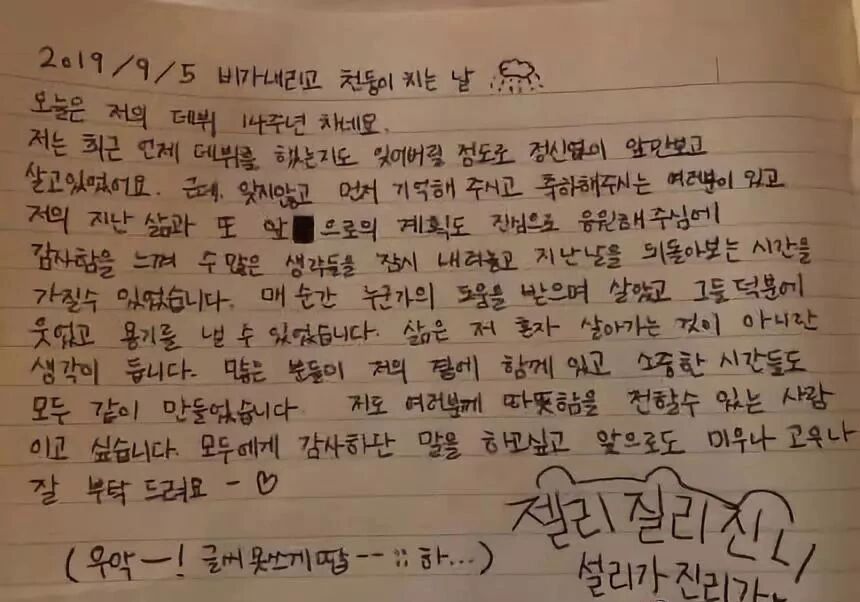 2019/9/5 비가내리고 천둥이 치는 날
오늘은 저의 데뷔 14주년 차네요.
저는 최근 언제 데뷔를 했는지도 잊어버릴 정도로 정신없이 앞만보고
살고있었어요. 근데, 잊지않고 먼저 기억해 주시고 축하해주시는 여러분이 있고
저의 지난 삶과 또 앞 으로의 계획도 진심으로 응원해 주심에
감사함을 느껴 수 많은 생각들을 잠시 내려놓고 지난날을 뒤돌아보는 시간을
가질수 있었습니다. 매 순간 누군가의 도움을 받으며 살았고 그들 덕분에
웃었고 용기를 낼 수 있었습니다. 삶은 저 혼자 살아가는 것이 아니란
생각이 듭니다. 많은 분들이 저의 곁에 함께 있고 소중한 시간들도
모두 같이 만들었습니다 저도 여러분께 따뜻함을 전할수 있는 사람
이고 싶습니다. 모두에게 감사하단 말을 하고싶고 앞으로도 미우나 고우나
잘 부탁 드려요 - ♡
젤리질리진리
(우악-! 글씨못쓰게땁--;; 하...)
설리가진리가